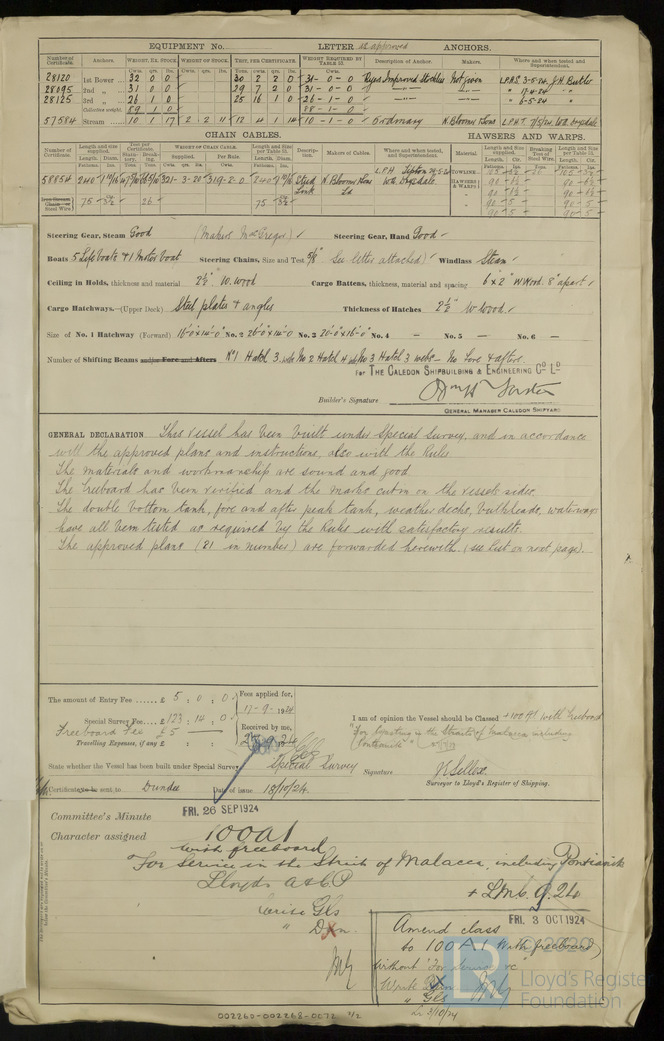 EQUIPMENT No. LETTER as approved ANCHORS.
Number of Certificate. Anchors. WEIGHT, EX. STOCK WEIGHT OF STOCK. TEST, PER CERTIFICATE WEIGHT REQUIRED BY TABLE 31. Description of Anchor. Makers. Where and when tested and Superintendent.
28120 1st Bower 32 0 0 30 2 2 0 31-0-0 Byers Improved Stockless Not given L.P.H.S. 3-5-24. J.H. Butler
28095 2nd " 31 0 0 29 7 2 0 31-0-0 17-4-24
28125 3rd " 26 1 0 25 16 1 0 26-1-0 6-5-24
Collective weight. 89 1 0 88-1-0
57584 Stream 10 1 17 2 2 11 12 4 1 14 10-1-0 Ordinary N. Bloomer & Sons L.P.H.T. 7/5/24. W.A. Drysdale
CHAIN CABLES. HAWSERS AND WARPS.
58854 240 321-3-20 319-2-0 240 Stud Link N. Bloomer & Sons Ld L.P.H. Tipton W.A. Drysdale
TOWLINE
HAWSERS & WARPS
75 26 75
Steering Gear, Steam Good (Makers McGregor) Steering Gear, Hand Good
Boats 5 Lifeboats & 1 Motor boat Steering Chains, Size and Test 5/8 See letter attached) Windlass Steam
Ceiling in Holds, thickness and material 2½" W. wood Cargo Battens, thickness, material and spacing 6" x 2" W Wood. 8" apart
Cargo Hatchways.—(Upper Deck) Steel plates & angles Thickness of Hatches 2½" W. Wood.
Size of No. 1 Hatchway (Forward) 16'-0"x14'-0" No. 2 26'-0"x14'-0" No. 3 20'-0"x16'-0" No. 4 — No. 5 — No. 6 —
Number of Shifting Beams and/or Fore and Afters No 1 Hatch 3 webs No 2 Hatch 4 webs No 3 Hatch 3 webs — No Fore & afters.
for THE CALEDON SHIPBUILDING & ENGINEERING CO. LD.
Builder's Signature
GENERAL MANAGER CALEDON SHIPYARD
GENERAL DECLARATION This vessel has been built under Special Survey, and in accordance
with the approved plans and instructions, also with the Rules.
The materials and workmanship are sound and good.
The Freeboard has been verified and the marks cut in on the vessels sides.
The double bottom tank, fore and after peak tank, weather decks, bulkheads, waterways
have all been tested as required by the Rules with satisfactory results.
The approved plans (21 in number) are forwarded herewith (see list on next page).
The amount of Entry Fee £ 5 : 0 : 0 Fees applied for,
17-9-1924
Special Survey Fee £ 123 : 14 : 0 Received by me,
Freeboard Fee £5
Travelling Expenses, if any £
I am of opinion the Vessel should be Classed +100A1 with Freeboard
"For trading in the Straits of Malacca including
Pontianak"
State whether the Vessel has been built under Special Survey Special Survey Signature
Surveyor to Lloyd's Register of Shipping.
Certificate to be sent to Dundee Date of issue 18/10/24.
Committee's Minute FRI. 26 SEP 1924
Character assigned 100A1
with freeboard
"For Service in the Strait of Malacca, including Pontianak
Lloyds A&CP
+ LMC 9.24
Write Gls
" Dun.
FRI. 3 OCT 1924
Amend class
to 100A1 With freeboard,
without "For Service &c"
Write Dun
" Gls
3/10/24
Lloyd's Register
Foundation
002260-002268-0072 1/2